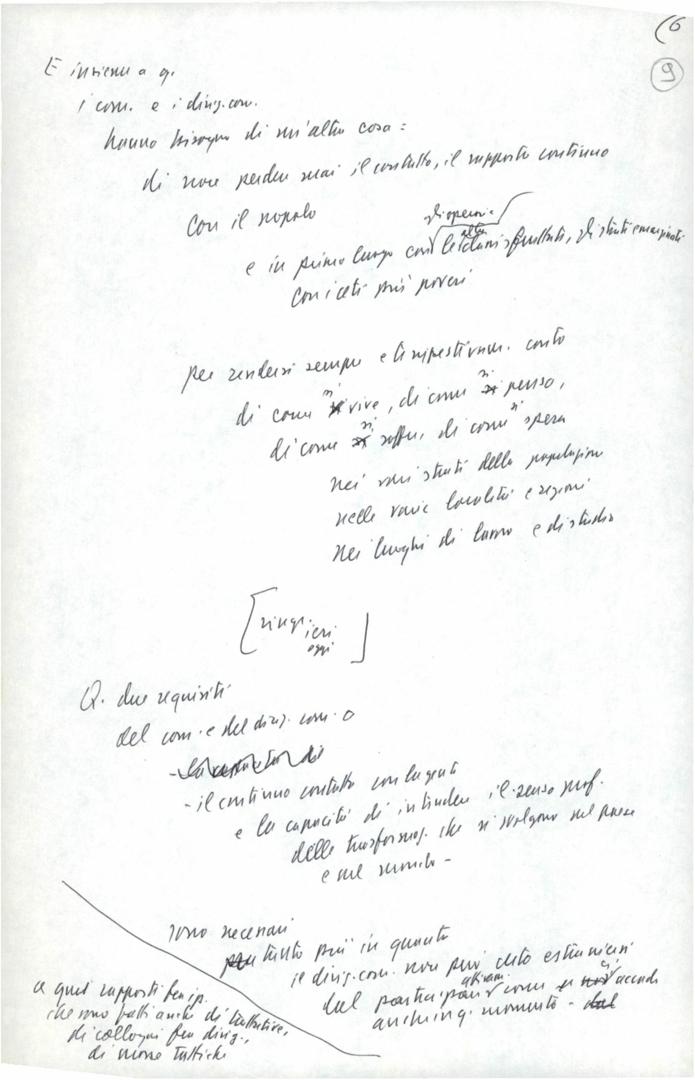 (6
9
E insieme a q.
i com. e i dirig. com.
hanno bisogno di un'altra cosa:
di non perdere mai il contatto, il rapporto continuo
con il popolo
gli operai e
altre
e in primo luogo con le classi sfruttate, gli strati emarginati
con i ceti più poveri
per rendersi sempre e tempestivam. conto
di come si vive, di come si pensa,
di come si soffre, di come si spera
nei vari strati della popolazione
nelle varie località e regioni
nei luoghi di lavoro e di studio
[ringr. ieri
oggi ]
Q. due requisiti
del com. e del dirig. com.
- il continuo contatto con la gente
e la capacità di intendere il senso prof.
delle trasformaz. che si svolgono nel paese
e nel mondo -
sono necessari
tanto più in quanto
il dirig. com. non può certo estraniarsi
dal partecipare attivam. come ci accade
anche in q. momento -
a quei rapporti fra ip.
che sono fatti anche di trattative,
di colloqui fra dirig.,
di mosse tattiche